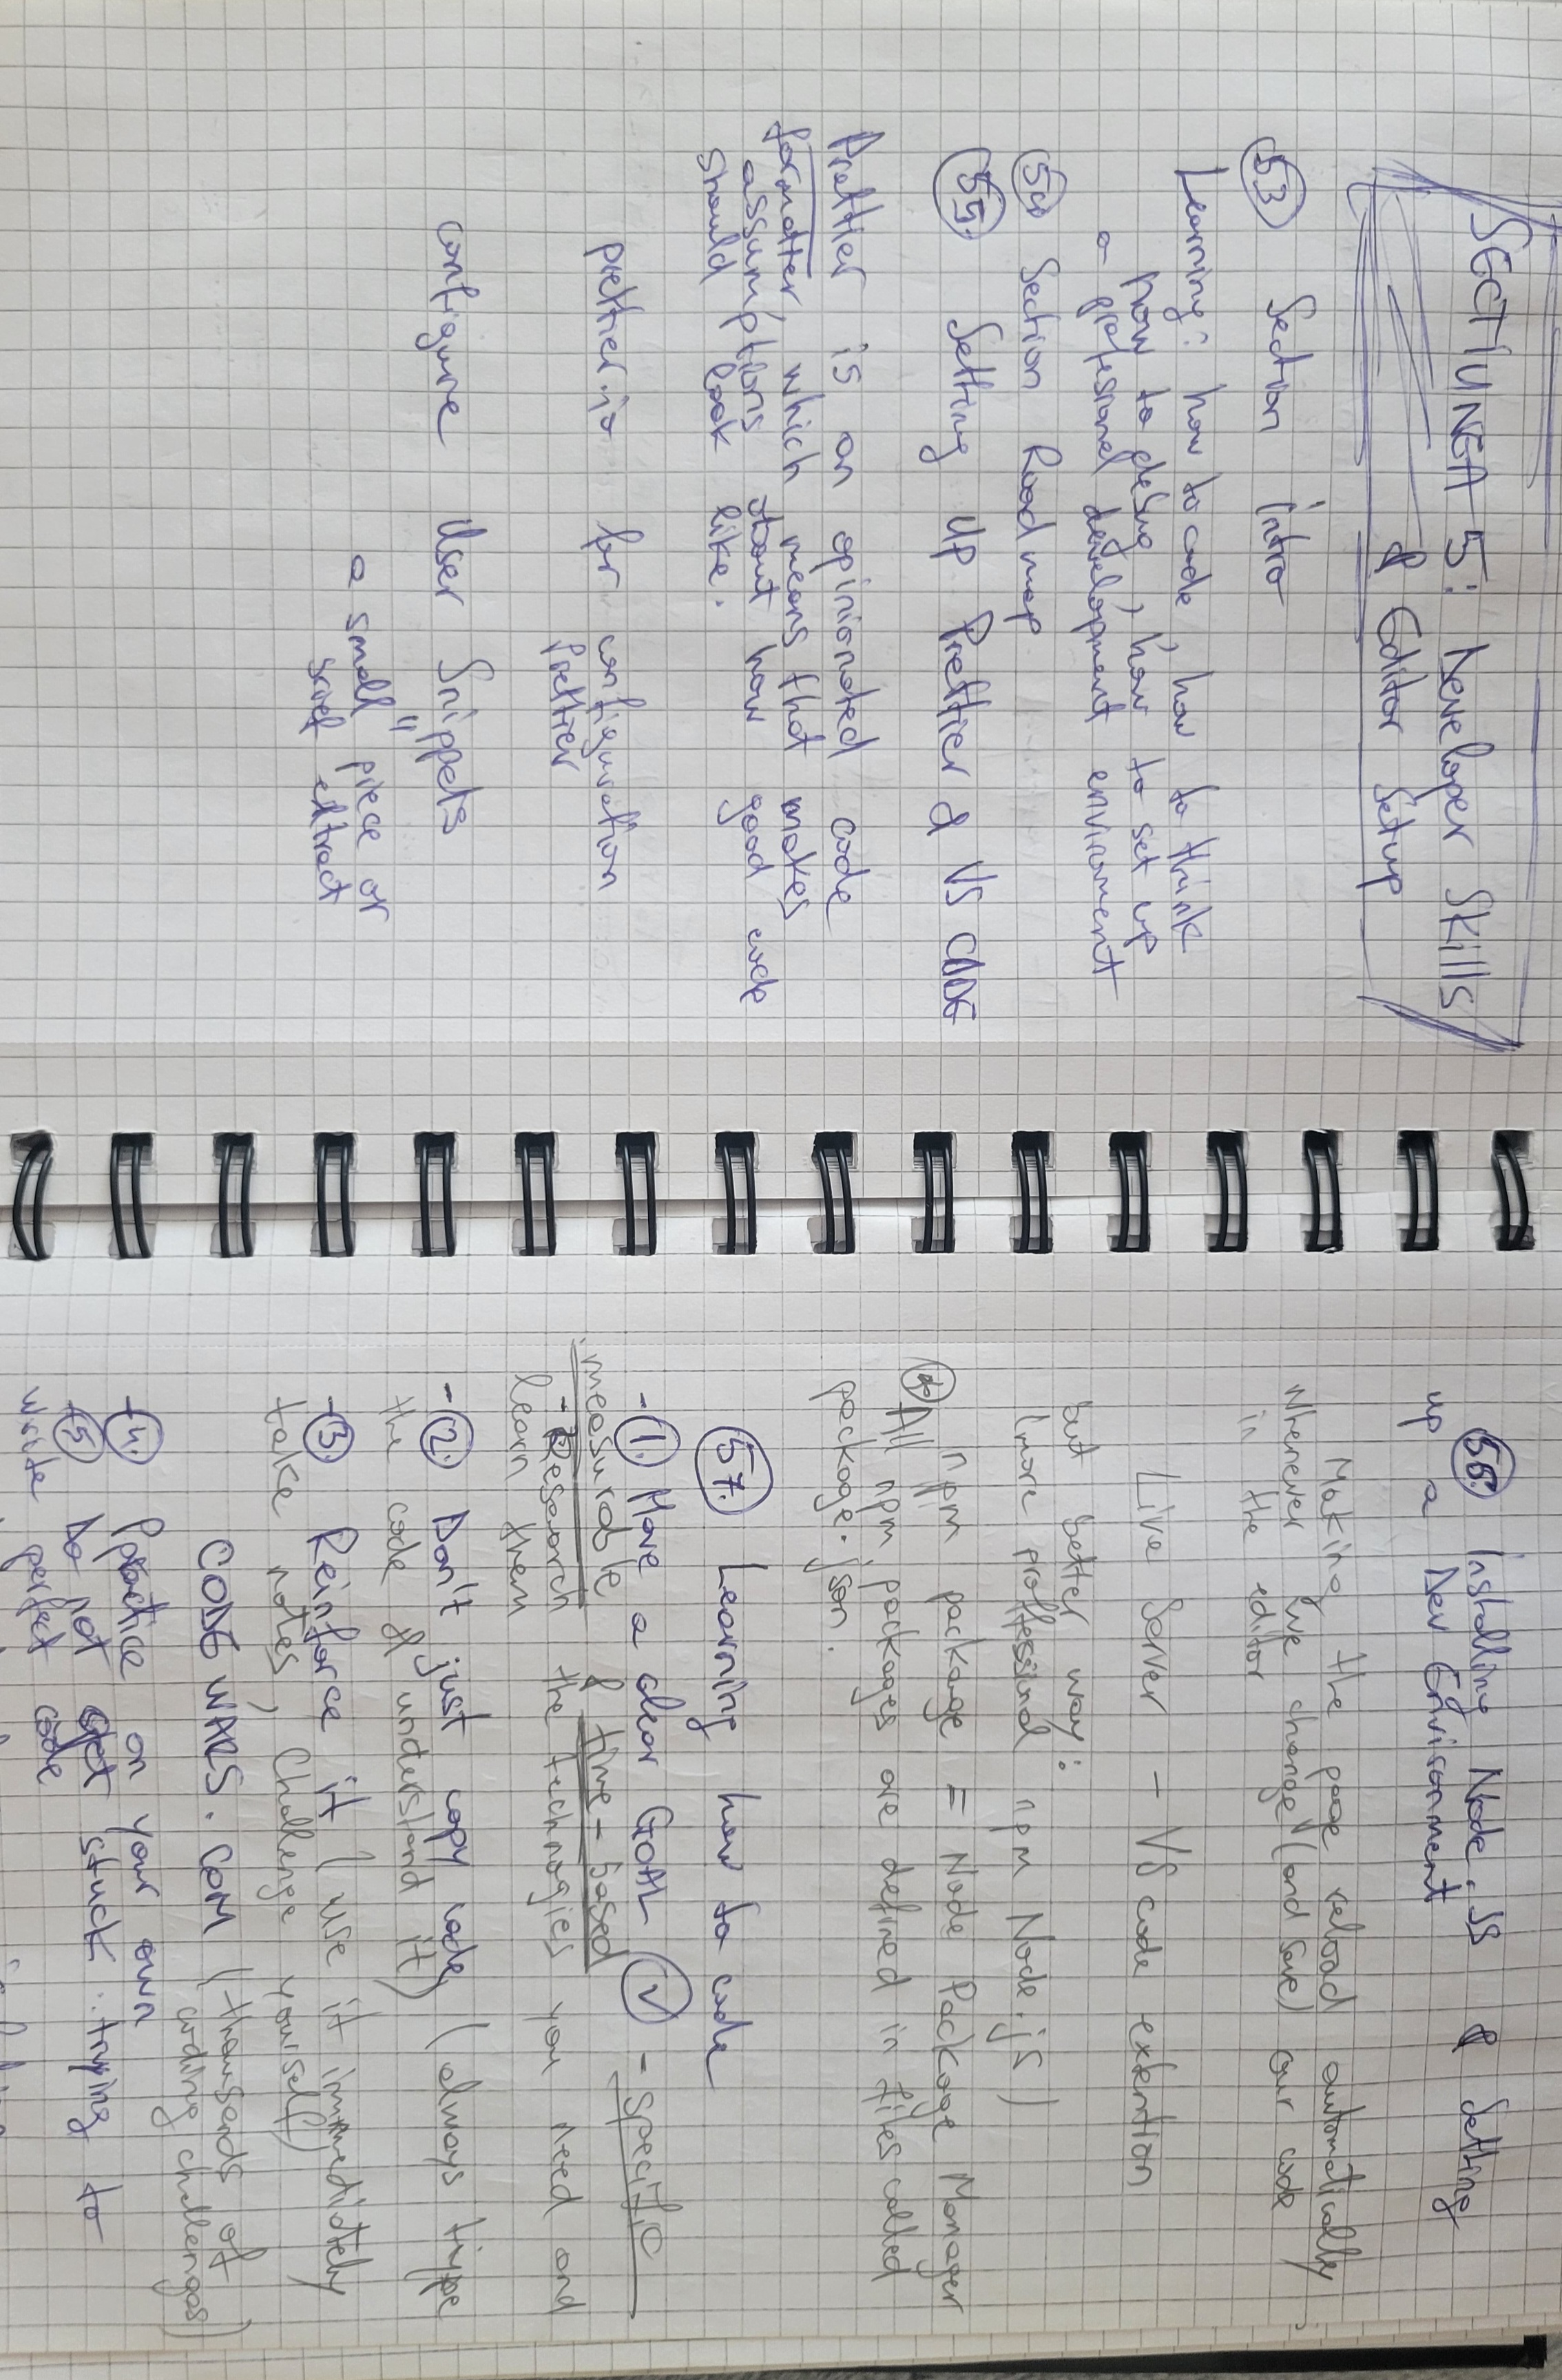 SECTIUNEA 5: Developer Skills
& Editor Setup
53 Section intro
Learning: how to code, how to think
how to debug, how to set up
a profesional development enviroment
54 Section Roadmap
55. Setting up Prettier & VS CODE
Prettier is an opinionated code
formatter, which means that makes
assumptions about how good code
should look like.
prettier.io for configuration
Prettier
configure User Snippets
"
a small piece or
brief extract
56. Installing Node.JS & Setting
up a Dev Environment
Making the page reload automatically
whenever we change (and save) our code
in the editor
Live Server - VS code extention
but better way:
(more proffessional npm Node.js)
npm package = Node Package Manager
* All npm packages are defined in files called
package.json.
57. Learning how to code
- 1. Have a clear GOAL v - specific
measurable & time-based
- Research the technogies you need and
learn them
- 2. Don't just copy code, (always type
the code & understand it)
- 3. Reinforce it (use it immeditely
take notes, Challenge yourself)
CODE WARS.COM (thousands of
coding challenges)
4. Practice on your own
5. Do not get stuck trying to
write perfect code